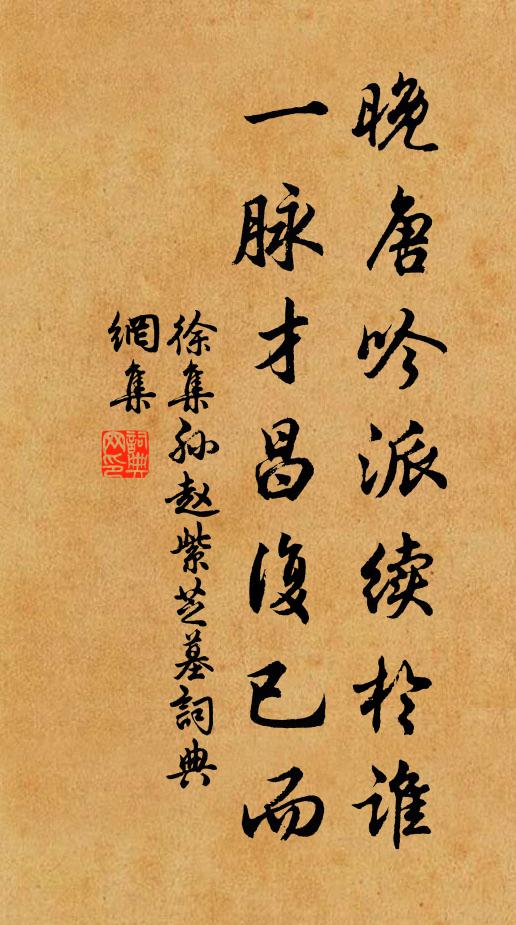 晚唐吟派续於谁
一脉才昌復已而
徐集孙赵紫芝墓詞典
網集
詞典
网印